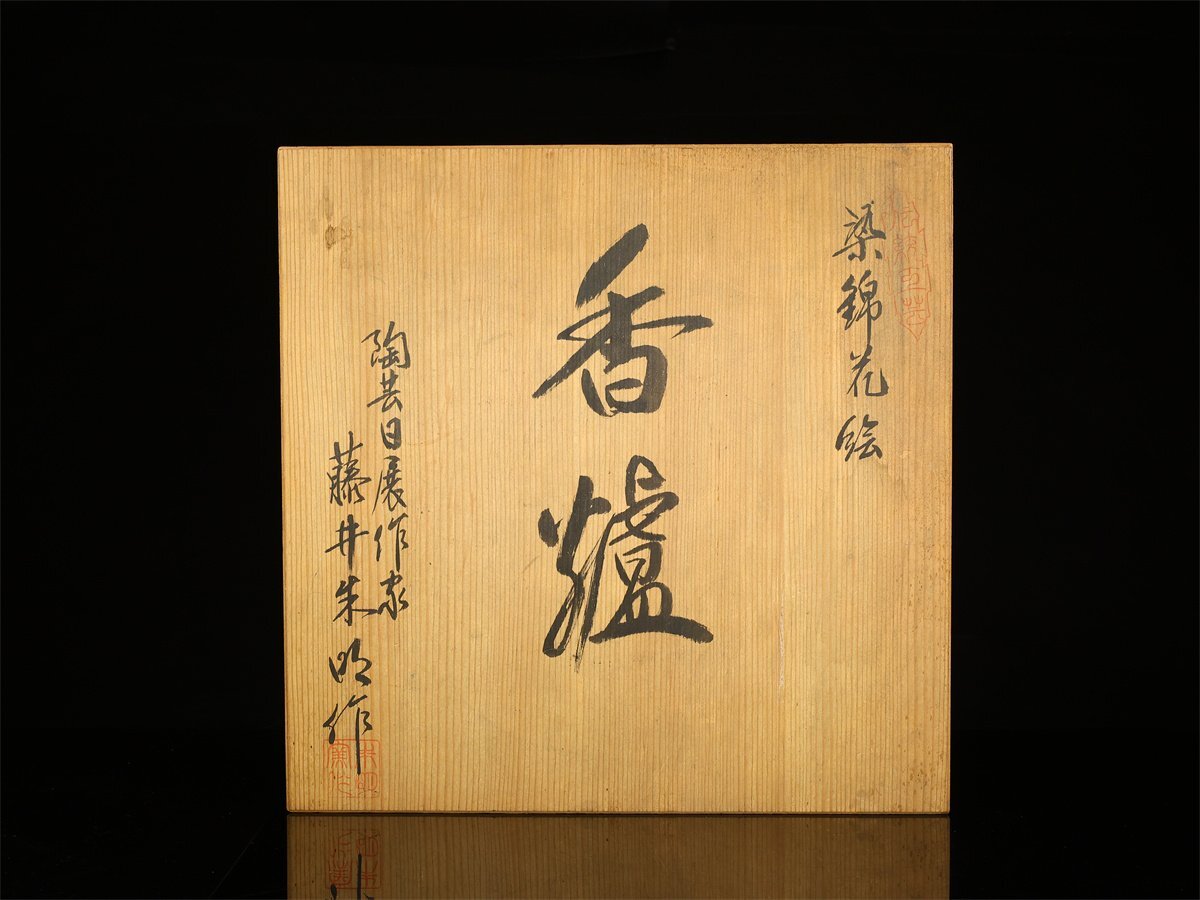 染錦花絵
香爐
陶芸日展作家
藤井朱明作